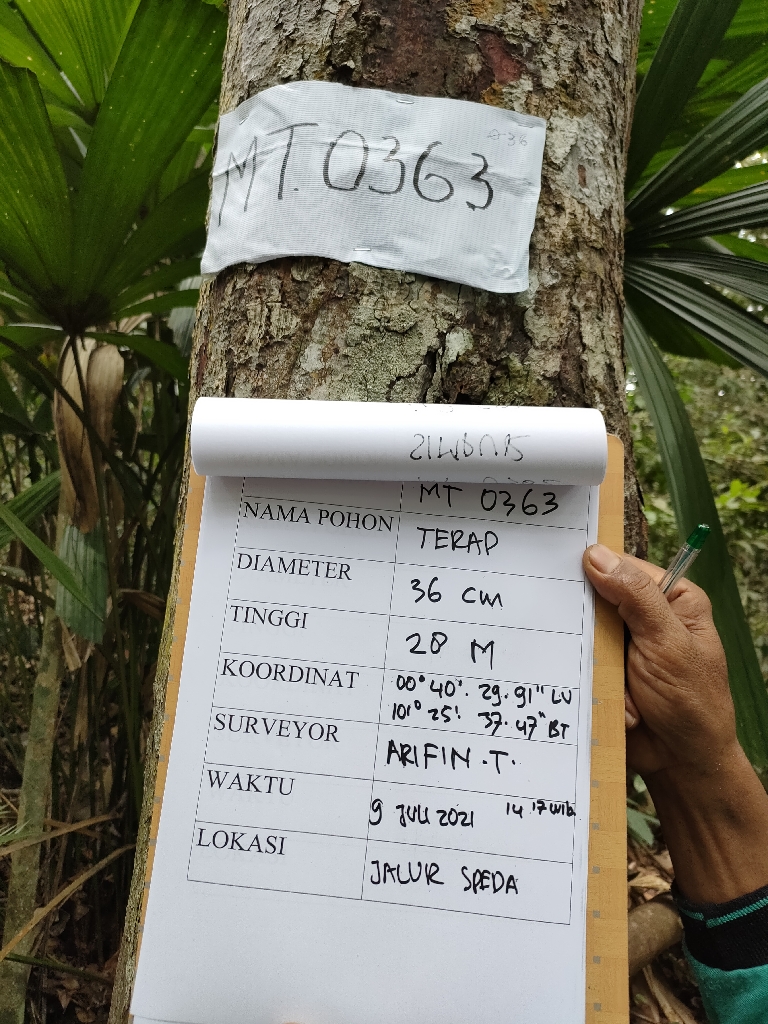 MT. 0363
MT 0363
NAMA POHON TERAP
DIAMETER 36 cm
TINGGI 28 M
KOORDINAT 00° 40'. 29.91" LU
101° 25'. 37.47" BT
SURVEYOR ARIFIN.T.
WAKTU 9 JULI 2021 14 17 Wib
LOKASI JALUR SPEDA